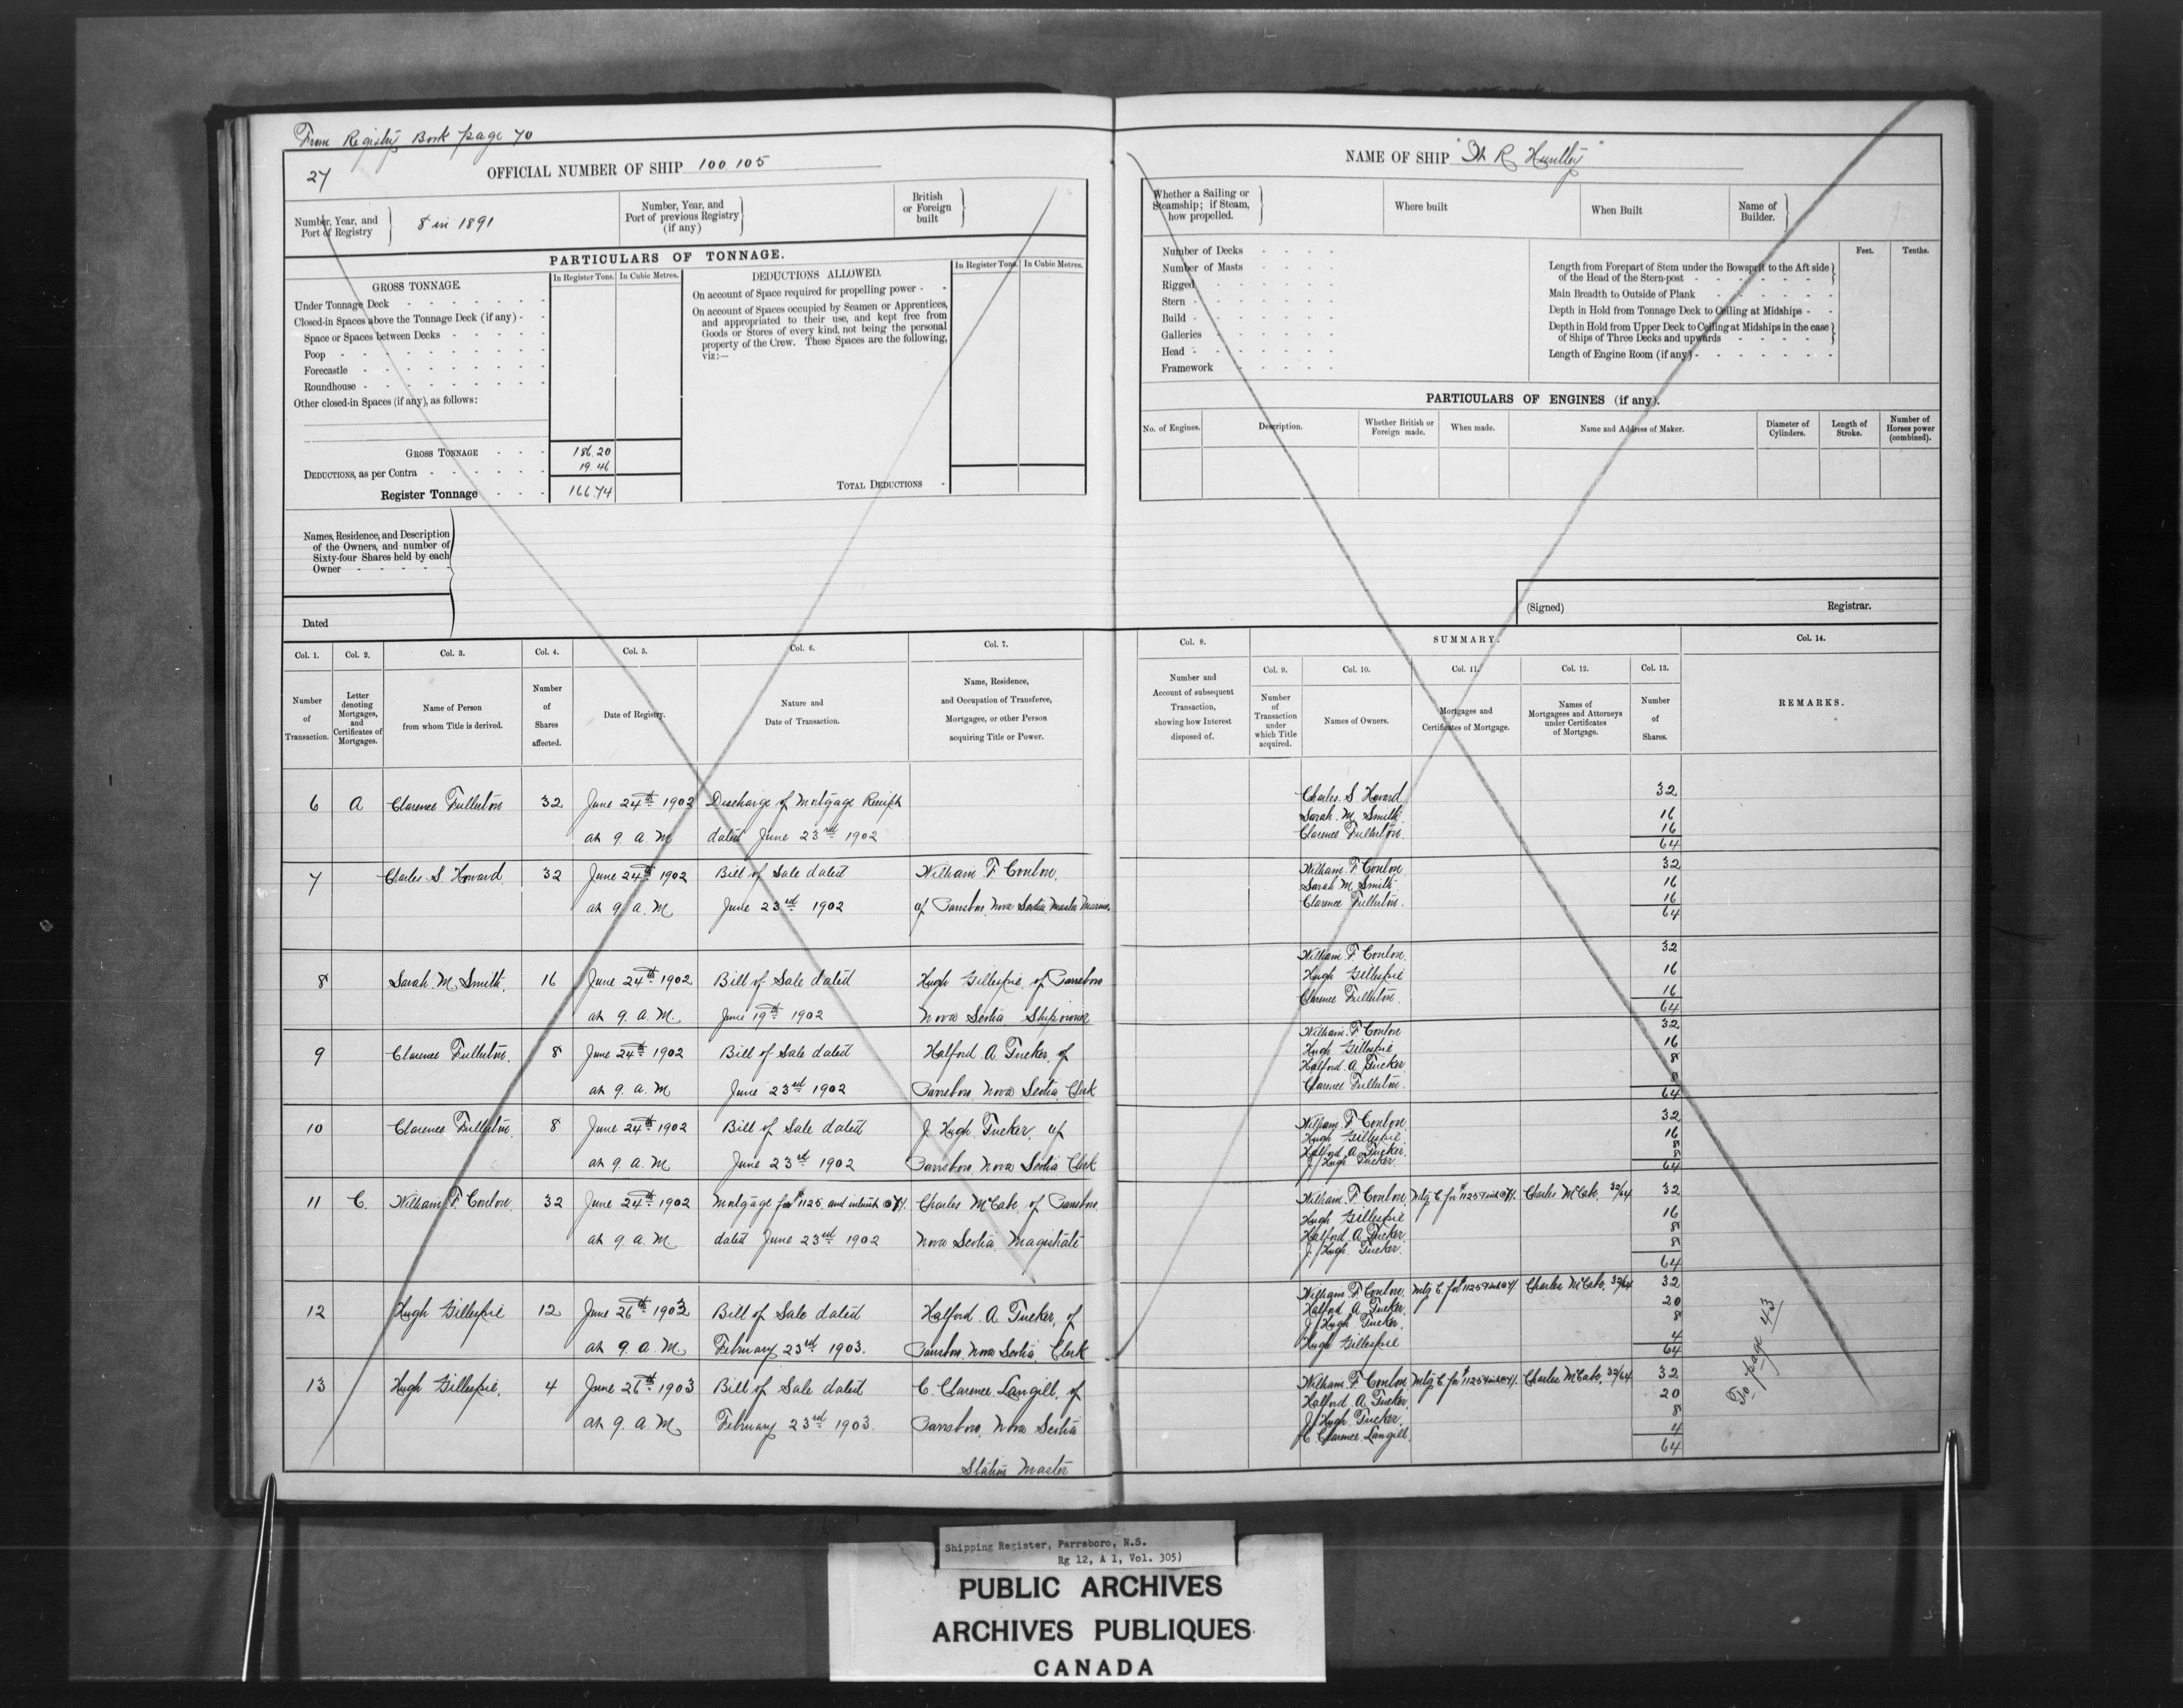 From Registry Book page 70
27
OFFICIAL NUMBER OF SHIP 100.105
Number, Year, and
Port of Registry
8 in 1891
Number, Year, and
Port of previous Registry
(if any)
British
or Foreign
built
PARTICULARS OF TONNAGE.
GROSS TONNAGE.
In Register Tons. In Cubic Metres.
Under Tonnage Deck
Closed-in Spaces above the Tonnage Deck (if any)
Space or Spaces between Decks
Poop
Forecastle
Roundhouse
Other closed-in Spaces (if any), as follows:
GROSS TONNAGE 186.20
DEDUCTIONS, as per Contra 19.46
Register Tonnage 166.74
DEDUCTIONS ALLOWED.
In Register Tons. In Cubic Metres.
On account of Space required for propelling power
On account of Spaces occupied by Seamen or Apprentices,
and appropriated to their use, and kept free from
Goods or Stores of every kind, not being the personal
property of the Crew. These Spaces are the following,
viz:—
TOTAL DEDUCTIONS
Names, Residence, and Description
of the Owners, and number of
Sixty-four Shares held by each
Owner
Dated
NAME OF SHIP "H. R. Huntley"
Whether a Sailing or
Steamship; if Steam,
how propelled.
Where built
When Built
Name of
Builder.
Number of Decks
Number of Masts
Rigged
Stern
Build
Galleries
Head
Framework
Feet. Tenths.
Length from Forepart of Stem under the Bowsprit to the Aft side
of the Head of the Stern-post
Main Breadth to Outside of Plank
Depth in Hold from Tonnage Deck to Ceiling at Midships
Depth in Hold from Upper Deck to Ceiling at Midships in the case
of Ships of Three Decks and upwards
Length of Engine Room (if any)
PARTICULARS OF ENGINES (if any).
No. of Engines.
Description.
Whether British or
Foreign made.
When made.
Name and Address of Maker.
Diameter of
Cylinders.
Length of
Stroke.
Number of
Horses power
(combined).
(Signed) Registrar.
Col. 1. Col. 2. Col. 3. Col. 4. Col. 5. Col. 6. Col. 7.
Number
of
Transaction.
Letter
denoting
Mortgages,
and
Certificates of
Mortgages.
Name of Person
from whom Title is derived.
Number
of
Shares
affected.
Date of Registry.
Nature and
Date of Transaction.
Name, Residence,
and Occupation of Transferee,
Mortgagee, or other Person
acquiring Title or Power.
Col. 8.
Number and
Account of subsequent
Transaction,
showing how Interest
disposed of.
SUMMARY.
Col. 9. Col. 10. Col. 11. Col. 12. Col. 13.
Number
of
Transaction
under
which Title
acquired.
Names of Owners.
Mortgages and
Certificates of Mortgage.
Names of
Mortgagees and Attorneys
under Certificates
of Mortgage.
Number
of
Shares.
Col. 14.
REMARKS.
6 A Clarence Fullerton 32 June 24th 1902 Discharge of Mortgage Receipt
at 9. A. M dated June 23rd 1902
Charles S Howard 32
Sarah M Smith 16
Clarence Fullerton 16
64
7 Charles S. Howard 32 June 24th 1902 Bill of Sale dated William F Conlon
at 9. A. M June 23rd 1902 of Parrsboro, Nova Scotia, Master Mariner
William F Conlon 32
Sarah M Smith 16
Clarence Fullerton 16
64
8 Sarah M. Smith 16 June 24th 1902 Bill of Sale dated Hugh Gillespie of Parrsboro
at 9. A. M. June 19th 1902 Nova Scotia Shipowner
William F Conlon 32
Hugh Gillespie 16
Clarence Fullerton 16
64
9 Clarence Fullerton 8 June 24th 1902 Bill of Sale dated Halford A. Tucker, of
at 9. A. M June 23rd 1902 Parrsboro, Nova Scotia, Clerk
William F Conlon 32
Hugh Gillespie 16
Halford A Tucker 8
Clarence Fullerton 8
64
10 Clarence Fullerton 8 June 24th 1902 Bill of Sale dated J. Hugh Tucker, of
at 9. A. M June 23rd 1902 Parrsboro, Nova Scotia Clerk
William F Conlon 32
Hugh Gillespie 16
Halford A Tucker 8
J. Hugh Tucker 8
64
11 C. William F Conlon 32 June 24th 1902 Mortgage for $1125 and interest @ 7% Charles McCabe of Parrsboro
at 9. A. M dated June 23rd 1902 Nova Scotia, Magistrate
William F Conlon Mtg C for $1125 & int @ 7% Charles McCabe, 32/64 32
Hugh Gillespie 16
Halford A Tucker 8
J. Hugh Tucker 8
64
12 Hugh Gillespie 12 June 26th 1903 Bill of Sale dated Halford A. Tucker, of
at 9. A. M February 23rd 1903. Parrsboro, Nova Scotia, Clerk
William F. Conlon Mtg C for $1125 & int @ 7% Charles McCabe, 32/64 32
Halford A Tucker 20
J. Hugh Tucker 8
Hugh Gillespie 4
64
13 Hugh Gillespie 4 June 26th 1903 Bill of Sale dated C. Clarence Langill, of
at 9. A. M February 23rd 1903. Parrsboro, Nova Scotia
Station Master
William F Conlon Mtg C for $1125 & int @ 7% Charles McCabe, 32/64 32
Halford A Tucker 20
J. Hugh Tucker 8
C Clarence Langill 4
64
To page 43
Shipping Register, Parrsboro, N.S.
Rg 12, A 1, Vol. 305)
PUBLIC ARCHIVES
ARCHIVES PUBLIQUES
CANADA